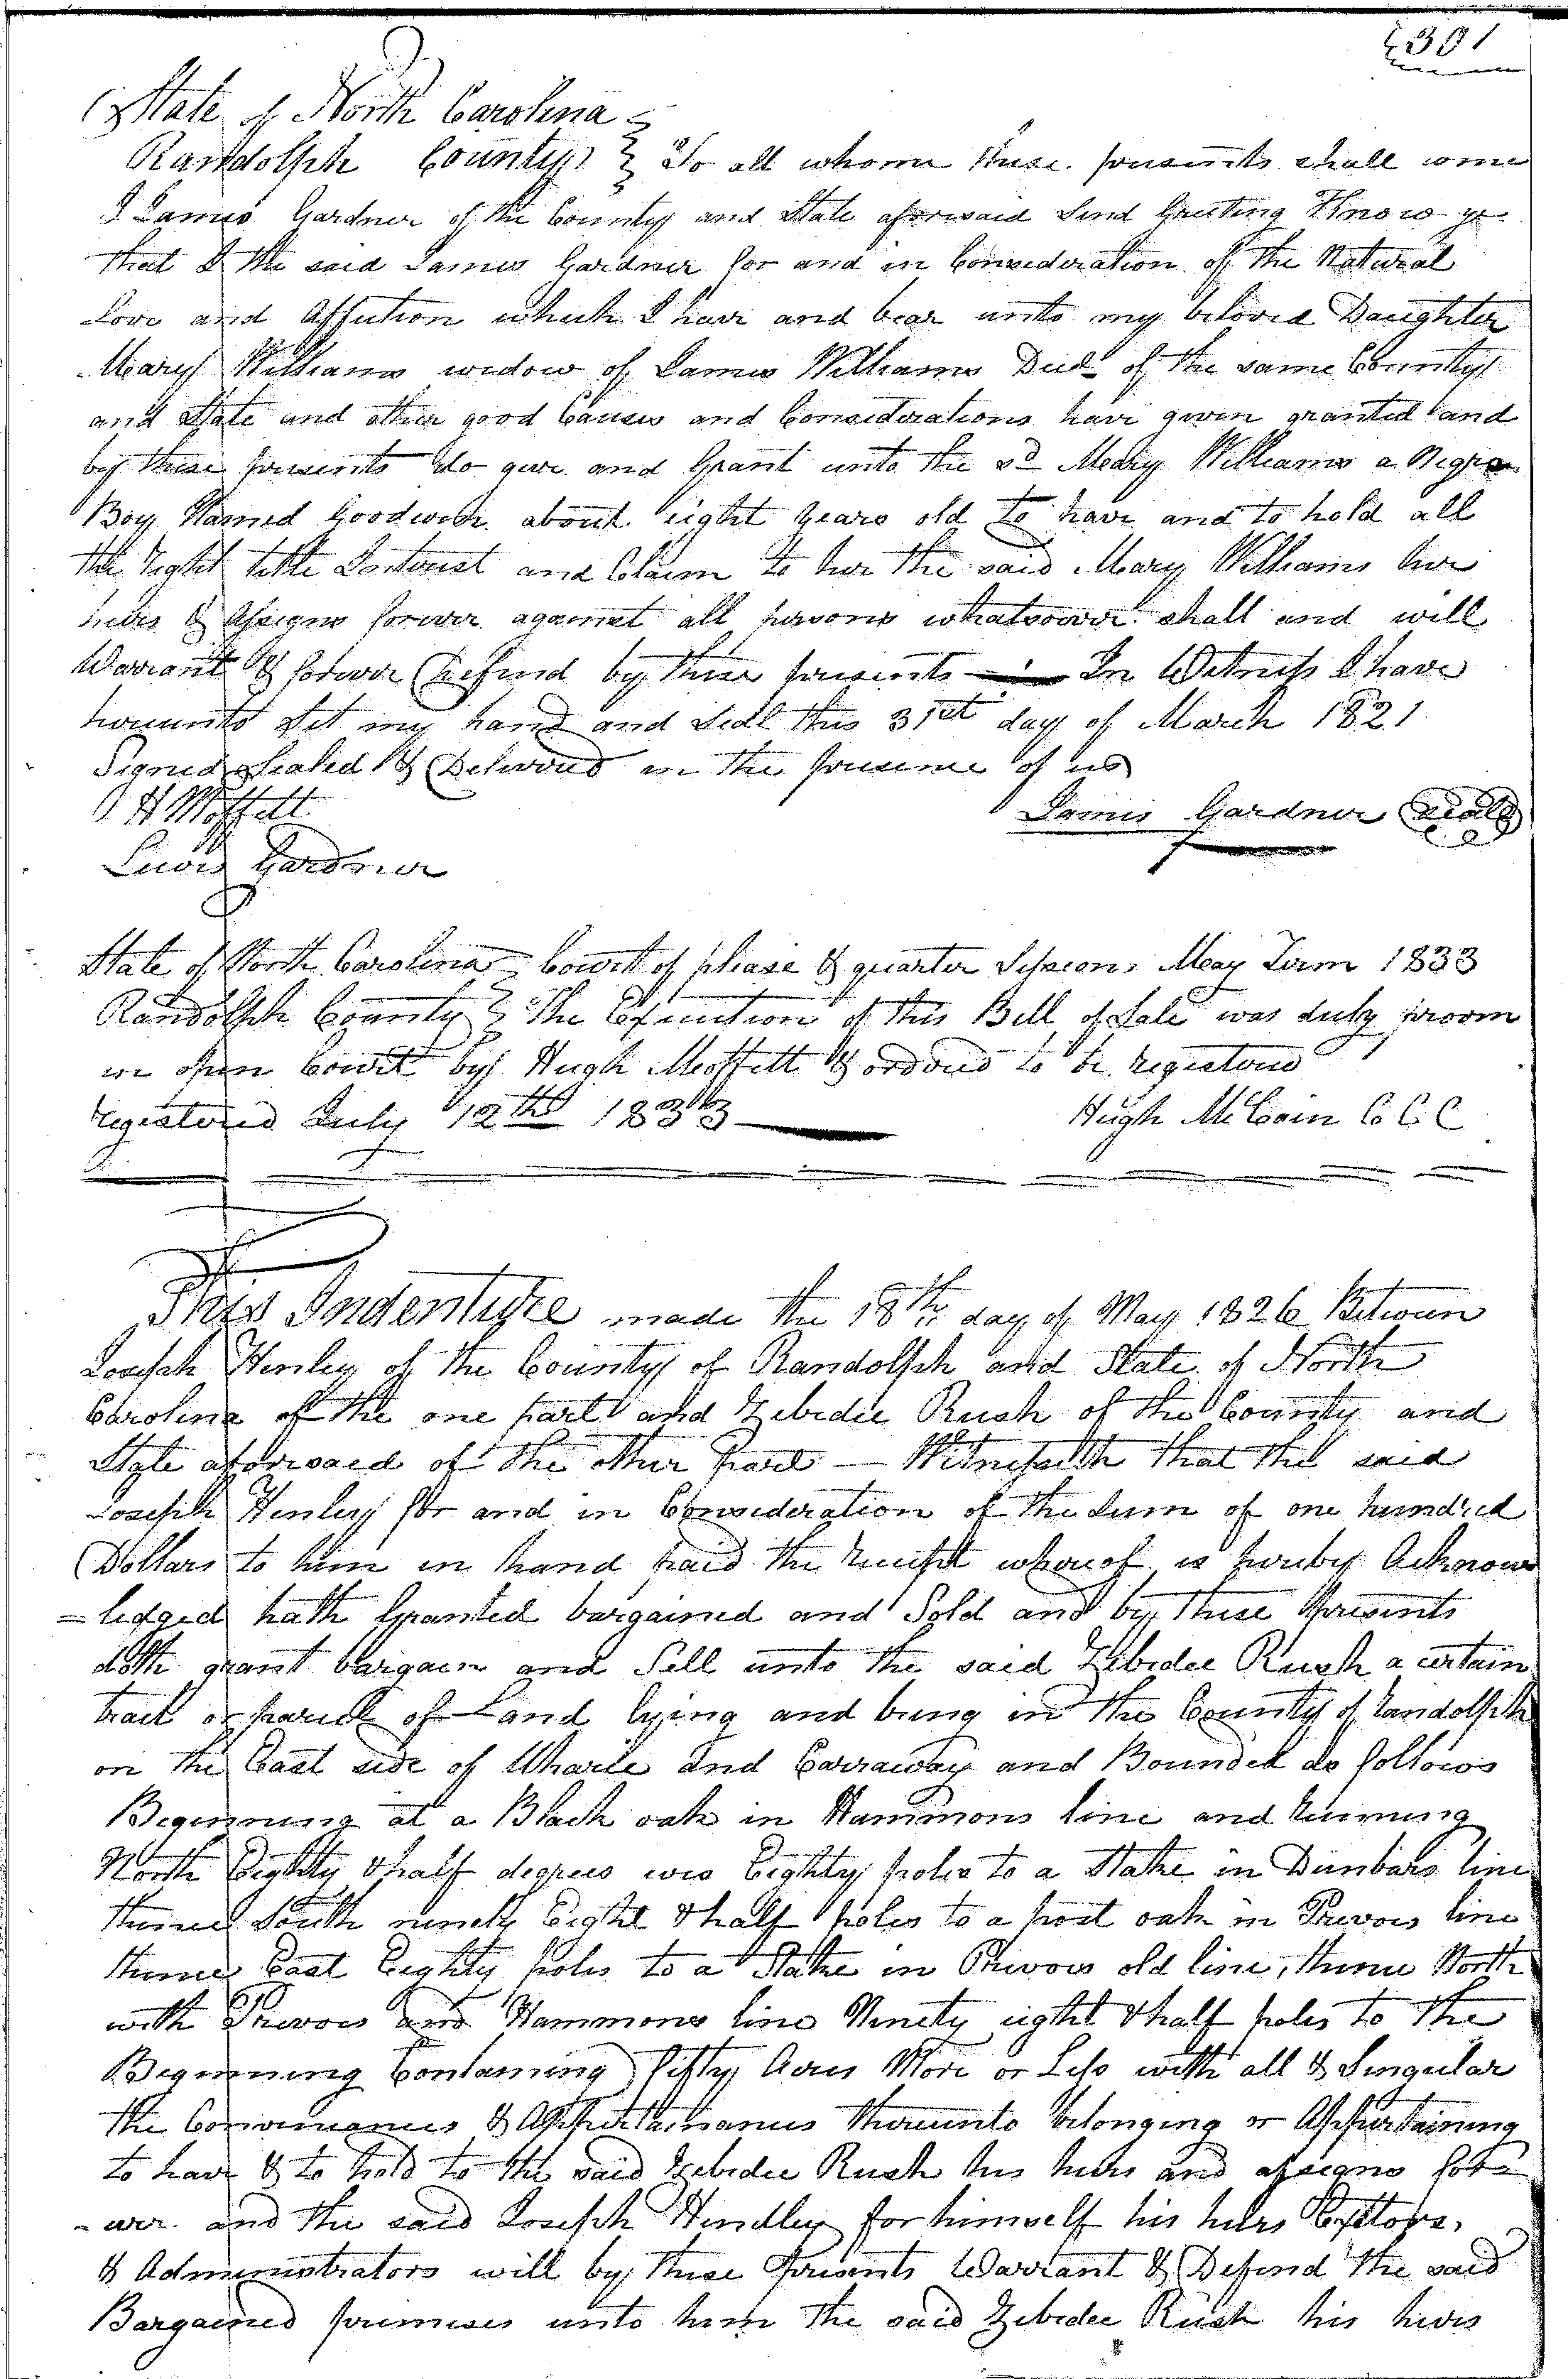 301
State of North Carolina
Randolph County } To all whome these presents shall come
I James Gardner of the County and State aforesaid Send Greeting Know ye
that I the said James Gardner for and in Consideration of the Natural
Love and Affection which I have and bear unto my beloved Daughter
Mary Williams widow of James Williams Decd of the same County
and State and other good Causes and Considerations have given granted and
by these presents do give and Grant unto the sd Mary Williams a Negro
Boy Named Goodwin about eight years old to have and to hold all
the right title Interest and Claim to her the said Mary Williams her
heirs & Assigns forever against all persons whatsoever shall and will
Warrant & forever Defend by these presents — In Witness I have
hereunto set my hand and Seal this 31st day of March 1821
Signed Sealed & Delivered in the presence of us
H Moffett
James Gardner Seal
Lewis Gardner
State of North Carolina Court of please & quarter Sessions May Term 1833
Randolph County } The Execution of this Bill of Sale was duly proven
in open Court by Hugh Moffett & ordered to be registered
registered July 12th 1833
Hugh McCain C C C
This Indenture made the 18th day of May 1826 Between
Joseph Henley of the County of Randolph and State of North
Carolina of the one part and Zebedee Rush of the County and
State aforesaid of the other part — Witnesseth that the said
Joseph Henley for and in Consideration of the Sum of one hundred
Dollars to him in hand paid the receipt whereof is hereby Acknow
=ledged hath Granted bargained and Sold and by these Presents
doth grant bargain and Sell unto the said Zebedee Rush a certain
tract or parcel of Land lying and being in the County of Randolph
on the East side of Wharie and Carraway and Bounded as follows
Beginning at a Black oak in Hammons line and running
North Eighty & half degrees wes Eighty poles to a Stake in Dunbars line
thence South ninety Eight & half poles to a post oak in Prevos line
thence East Eighty poles to a Stake in Prevos old line, thence North
with Prevos and Hammons line Ninety eight & half poles to the
Beginning Containing fifty Acres More or Less with all & Singular
the Conveniances & Appurtainances thereunto belonging or Appurtaining
to have & to hold to the said Zebedee Rush his heirs and assigns for=
-ever. and the said Joseph Hendley for himself his heirs Exctors,
& Administrators will by these Presents Warrant & Defend the said
Bargained premises unto him the said Zebedee Rush his heirs